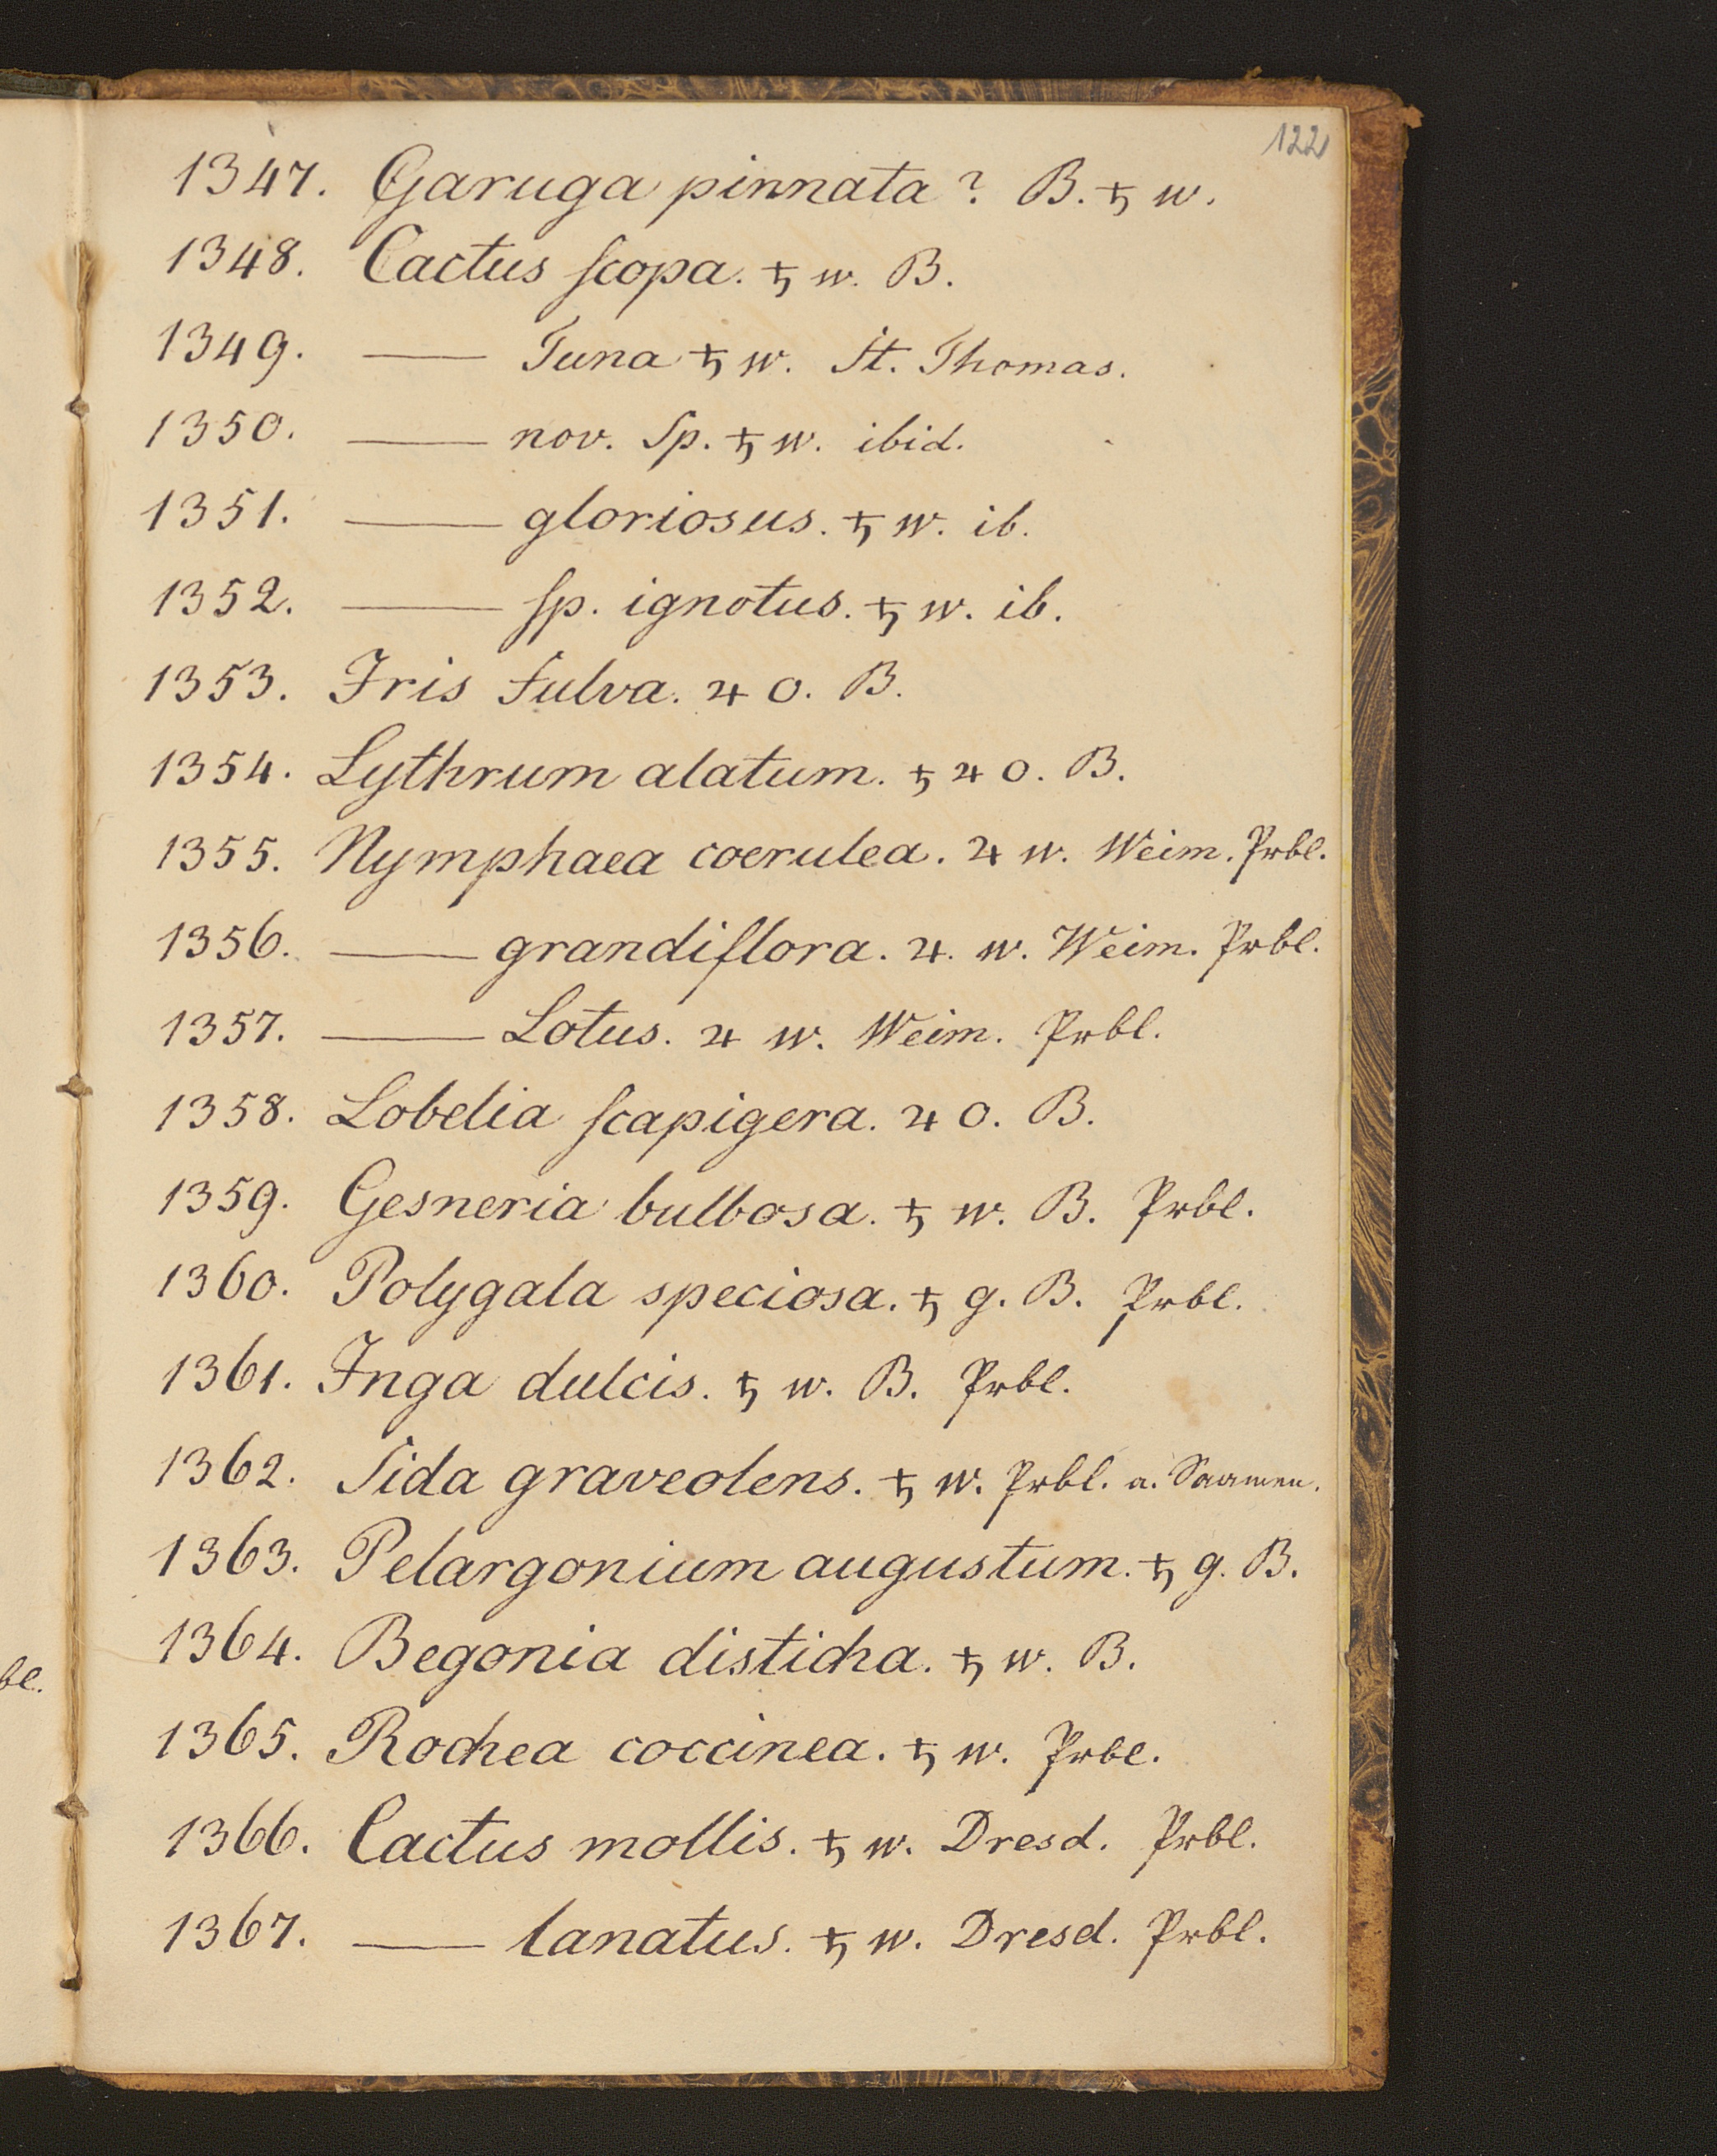 122
1347. Garuga pinnata? B. ♄ w.
1348. Cactus ſcopa. ♄ w. B.
1349. — Tuna ♄ w. St. Thomas.
1350. — nov. Sp. ♄ w. ibid.
1351. — gloriosus. ♄ w. ib.
1352. — ſp. ignotus. ♄ w. ib.
1353. Iris fulva. ♃ o. B.
1354. Lythrum alatum. ♄ ♃ o. B.
1355. Nymphaea coerulea. ♃ w. Weim. Prbl.
1356. — grandiflora. ♃. w. Weim. Prbl.
1357. — Lotus. ♃ w. Weim. Prbl.
1358. Lobelia ſcapigera. ♃ o. B.
1359. Gesneria bulbosa. ♄ w. B. Prbl.
1360. Polygala speciosa. ♄ g. B. Prbl.
1361. Inga dulcis. ♄ w. B. Prbl.
1362. Sida graveolens. ♄ w. Prbl. a. Saamen.
1363. Pelargonium augustum. ♄ g. B.
1364. Begonia disticha. ♄ w. B.
bl.
1365. Rochea coccinea. ♄ w. Prbl.
1366. Cactus mollis. ♄ w. Dresd. Prbl.
1367. — lanatus. ♄ w. Dresd. Prbl.